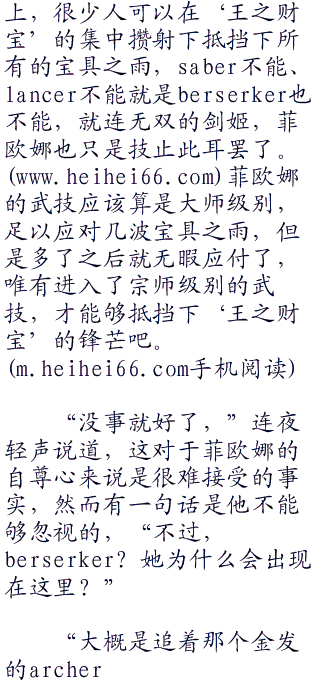 上，很少人可以在‘王之财
宝’的集中攒射下抵挡下所
有的宝具之雨，saber不能、
lancer不能就是berserker也
不能，就连无双的剑姬，菲
欧娜也只是技止此耳罢了。
(www.heihei66.com)菲欧娜
的武技应该算是大师级别，
足以应对几波宝具之雨，但
是多了之后就无暇应付了，
唯有进入了宗师级别的武
技，才能够抵挡下‘王之财
宝’的锋芒吧。
(m.heihei66.com手机阅读)
“没事就好了，”连夜
轻声说道，这对于菲欧娜的
自尊心来说是很难接受的事
实，然而有一句话是他不能
够忽视的，“不过，
berserker？她为什么会出现
在这里？”
“大概是追着那个金发
的archer